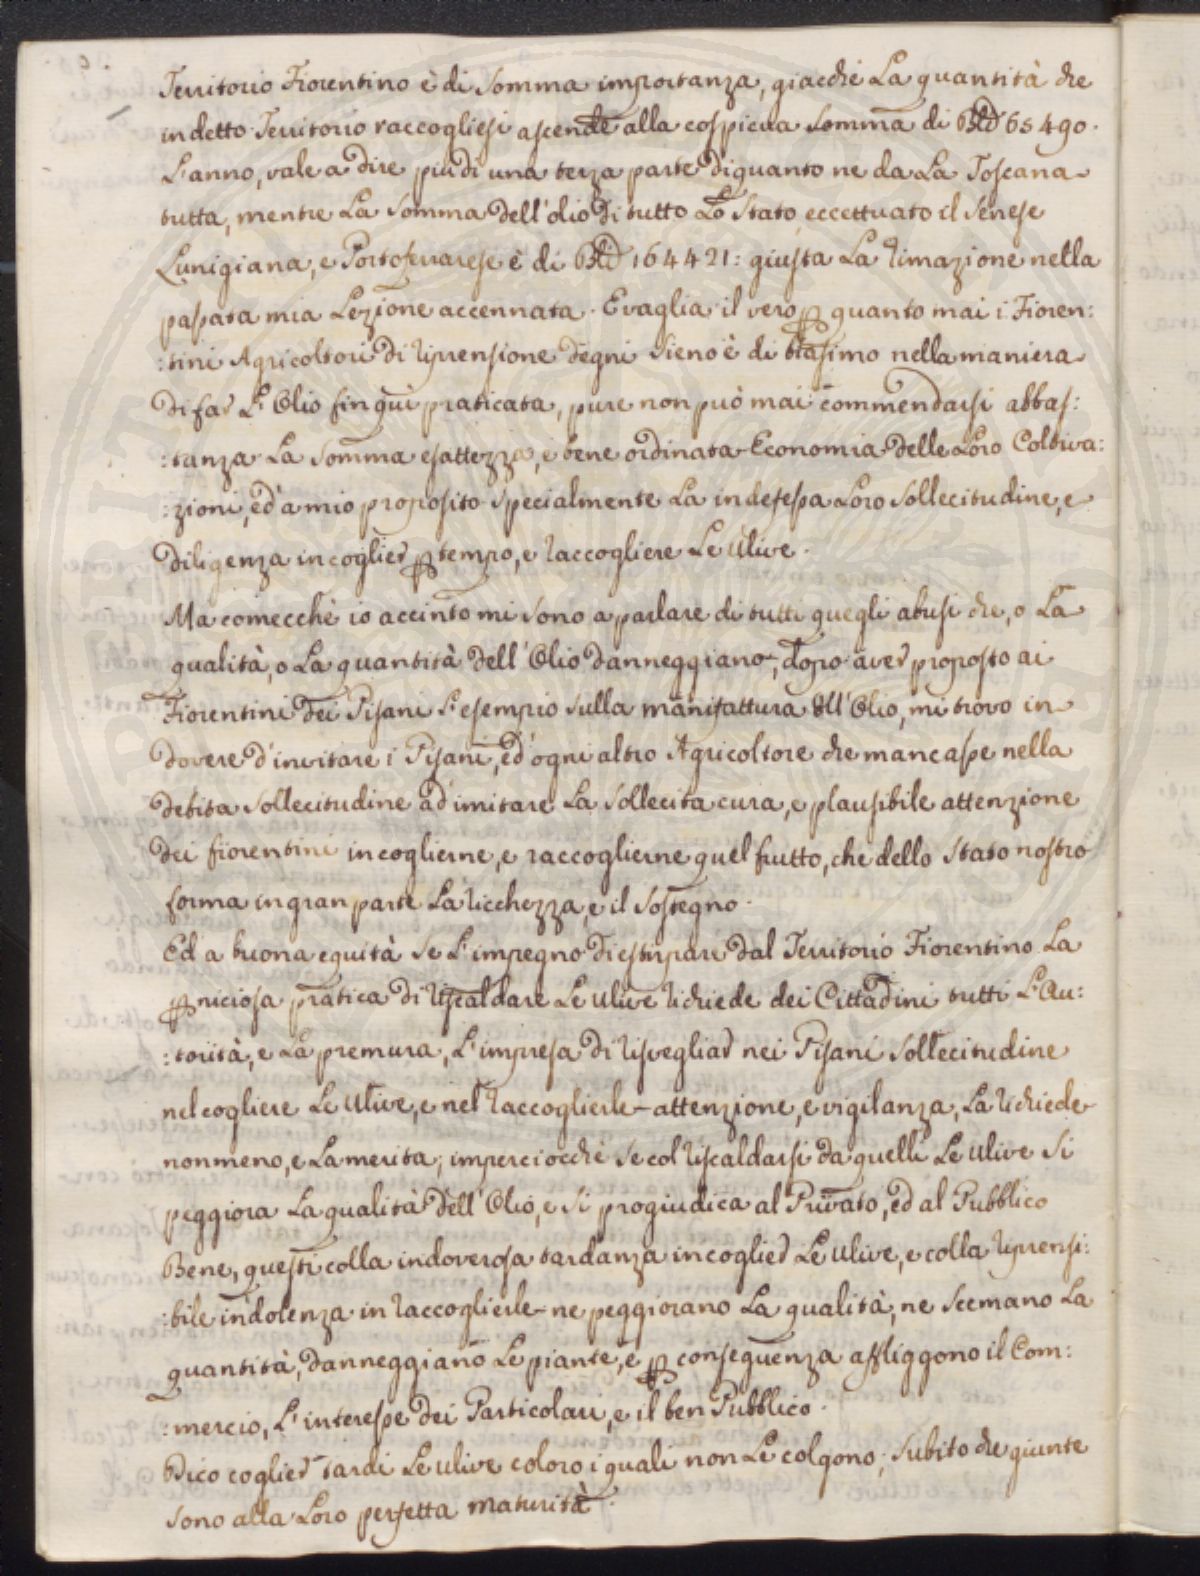 Territorio Fiorentino è di somma importanza, giacchè La quantità che
in detto Territorio raccogliesi ascende alla cospicua somma di 65490.
L'anno, vale a dire più di una terza parte di quanto ne da La Toscana
tutta, mentre La somma dell'olio di tutto Lo Stato, eccettuato il Senese
Lunigiana, e Portoferrarese è di 164421: giusta La rimazione nella
passata mia Lezione accennata. E vaglia il vero p quanto mai i Fioren:
:tini Agricoltori di riprensione degni sieno è di biasimo nella maniera
di far L'Olio fin qui praticata, pure non può mai commendarsi abbas:
:tanza La somma esattezza, e bene ordinata Economia delle Loro Coltiva:
:zioni, ed a mio proposito specialmente La indefessa Loro sollecitudine, e
diligenza in coglier p tempo, e raccogliere Le Ulive.
Ma comecchè io accinto mi sono a parlare di tutti quegli abusi che, o La
qualità, o La quantità dell'Olio danneggiano, dopo aver proposto ai
Fiorentini dei Pisani L'esempio sulla manifattura dell'Olio, mi trovo in
dovere d'invitare i Pisani, ed ogni altro Agricoltore che mancasse nella
debita sollecitudine ad imitare La sollecita cura, e plausibile attenzione
dei fiorentini in coglierne, e raccoglierne quel frutto, che dello Stato nostro
forma in gran parte La ricchezza, e il sostegno.
Ed a buona equità se L'impegno di estirpare dal Territorio Fiorentino La
pniciosa pratica di riscaldare Le ulive richiede dei Cittadini tutti L'Au:
:torità, e La premura, L'impresa di risvegliar nei Pisani sollecitudine
nel cogliere Le Ulive, e nel raccoglierle attenzione, e vigilanza, La richiede
non meno, e La merita; imperciocchè se col riscaldarsi da quelli Le ulive si
peggiora La qualità dell'Olio, e si progiudica al Privato, ed al Pubblico
Bene, questi colla indoverosa tardanza in coglier Le ulive, e colla riprensi:
:bile indolenza in raccoglierle ne peggiorano La qualità, ne scemano La
quantità, danneggiano Le piante, e p conseguenza affliggono il Com:
:mercio, L'interesse dei Particolari, e il ben Pubblico.
Dico coglier tardi Le ulive coloro i quali non Le colgono, subito che giunte
sono alla Loro perfetta maturità.